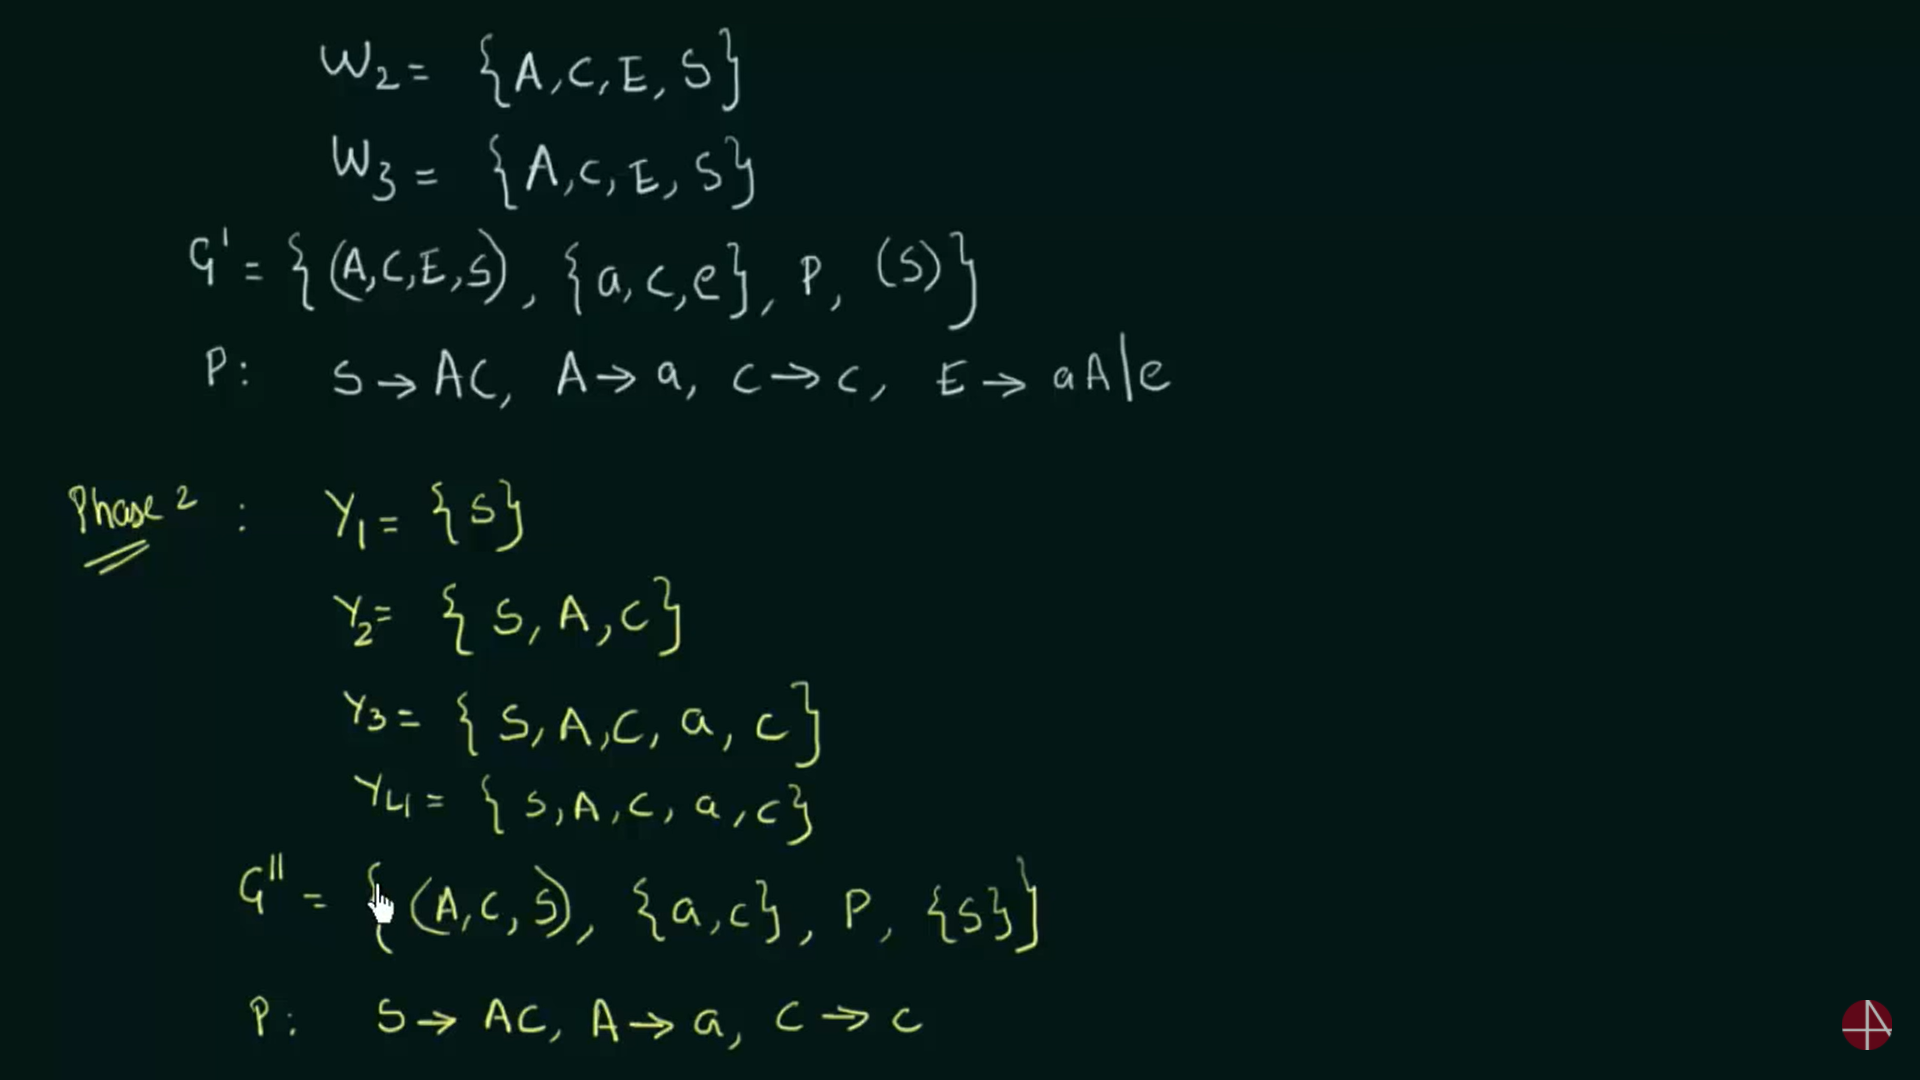 W2 = {A, C, E, S}
W3 = {A, C, E, S}
G' = {(A, C, E, S), {a, c, e}, P, (S)}
P: S → AC, A → a, C → c, E → aA|e
Phase 2 : Y1 = {S}
Y2 = {S, A, C}
Y3 = {S, A, C, a, c}
Y4 = {S, A, C, a, c}
G'' = {(A, C, S), {a, c}, P, {S}}
P: S → AC, A → a, C → c